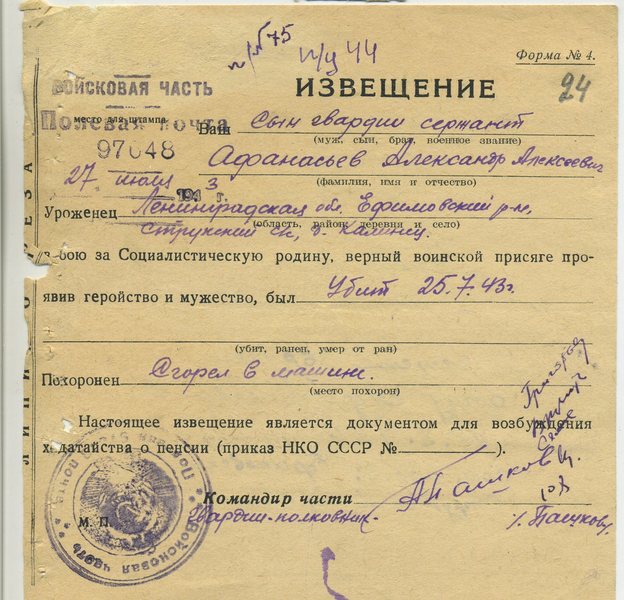 п/№75 п/ц 44
Форма № 4.
24
ВОЙСКОВАЯ ЧАСТЬ
ИЗВЕЩЕНИЕ
место для штампа
Полевая почта
97048
Ваш сын гвардии сержант
(муж, сын, брат, военное звание)
Афанасьев Александр Алексеевич
(фамилия, имя и отчество)
27 июля 1943 г.
Уроженец Ленинградская обл. Ефимовский р-н,
(область, район, деревня и село)
в бою за Социалистическую родину, верный воинской присяге про-
явив геройство и мужество, был убит 25.7.43г.
(убит, ранен, умер от ран)
Похоронен Сгорел в машине.
(место похорон)
Настоящее извещение является документом для возбуждения
ходатайства о пенсии (приказ НКО СССР № ).
Командир части
М. П.
Гвардии-полковник-
/. Пашков/.
Полевая почта
Войсковая часть